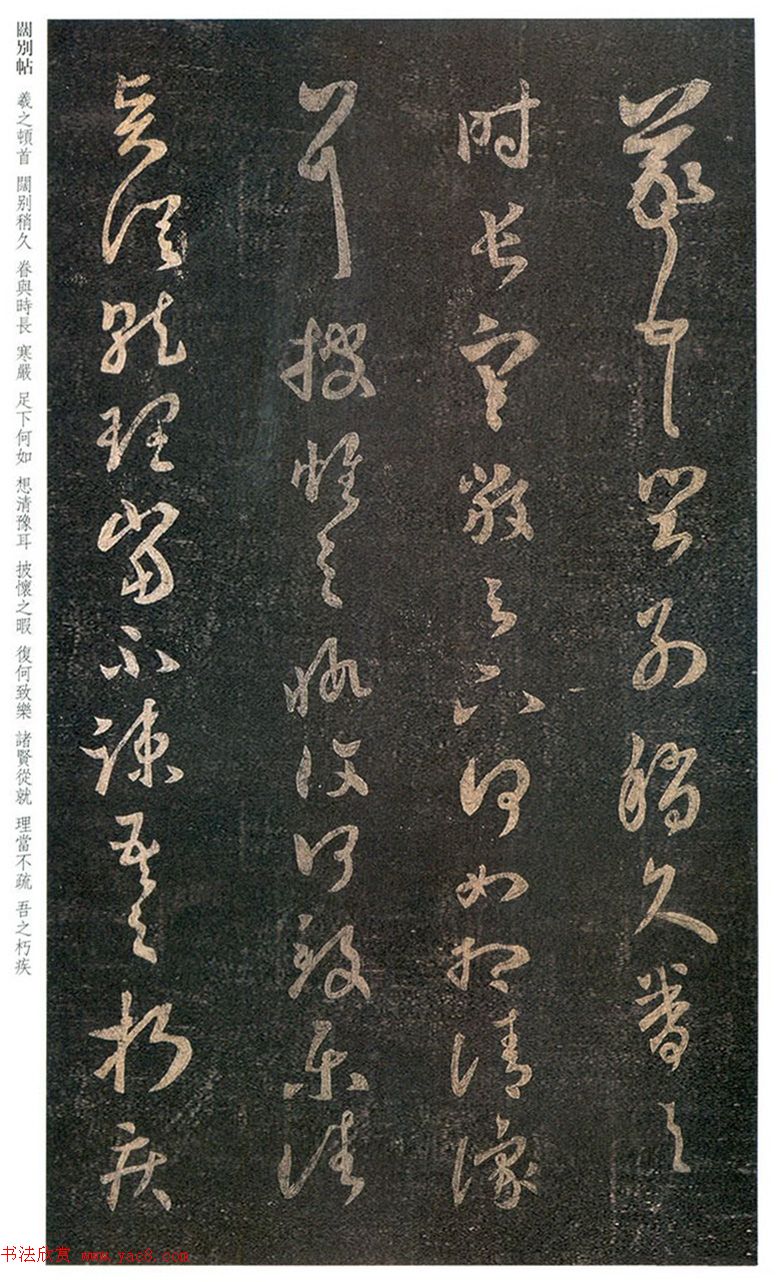 羲之頓首闊別稍久眷與
時長寒嚴足下何如想清豫
耳披懷之暇復何致樂諸
賢從就理當不疏吾之朽疾
闊別帖 羲之頓首 闊別稍久 眷與時長 寒嚴 足下何如 想清豫耳 披懷之暇 復何致樂 諸賢從就 理當不疏 吾之朽疾
书法欣赏 www.yac8.com